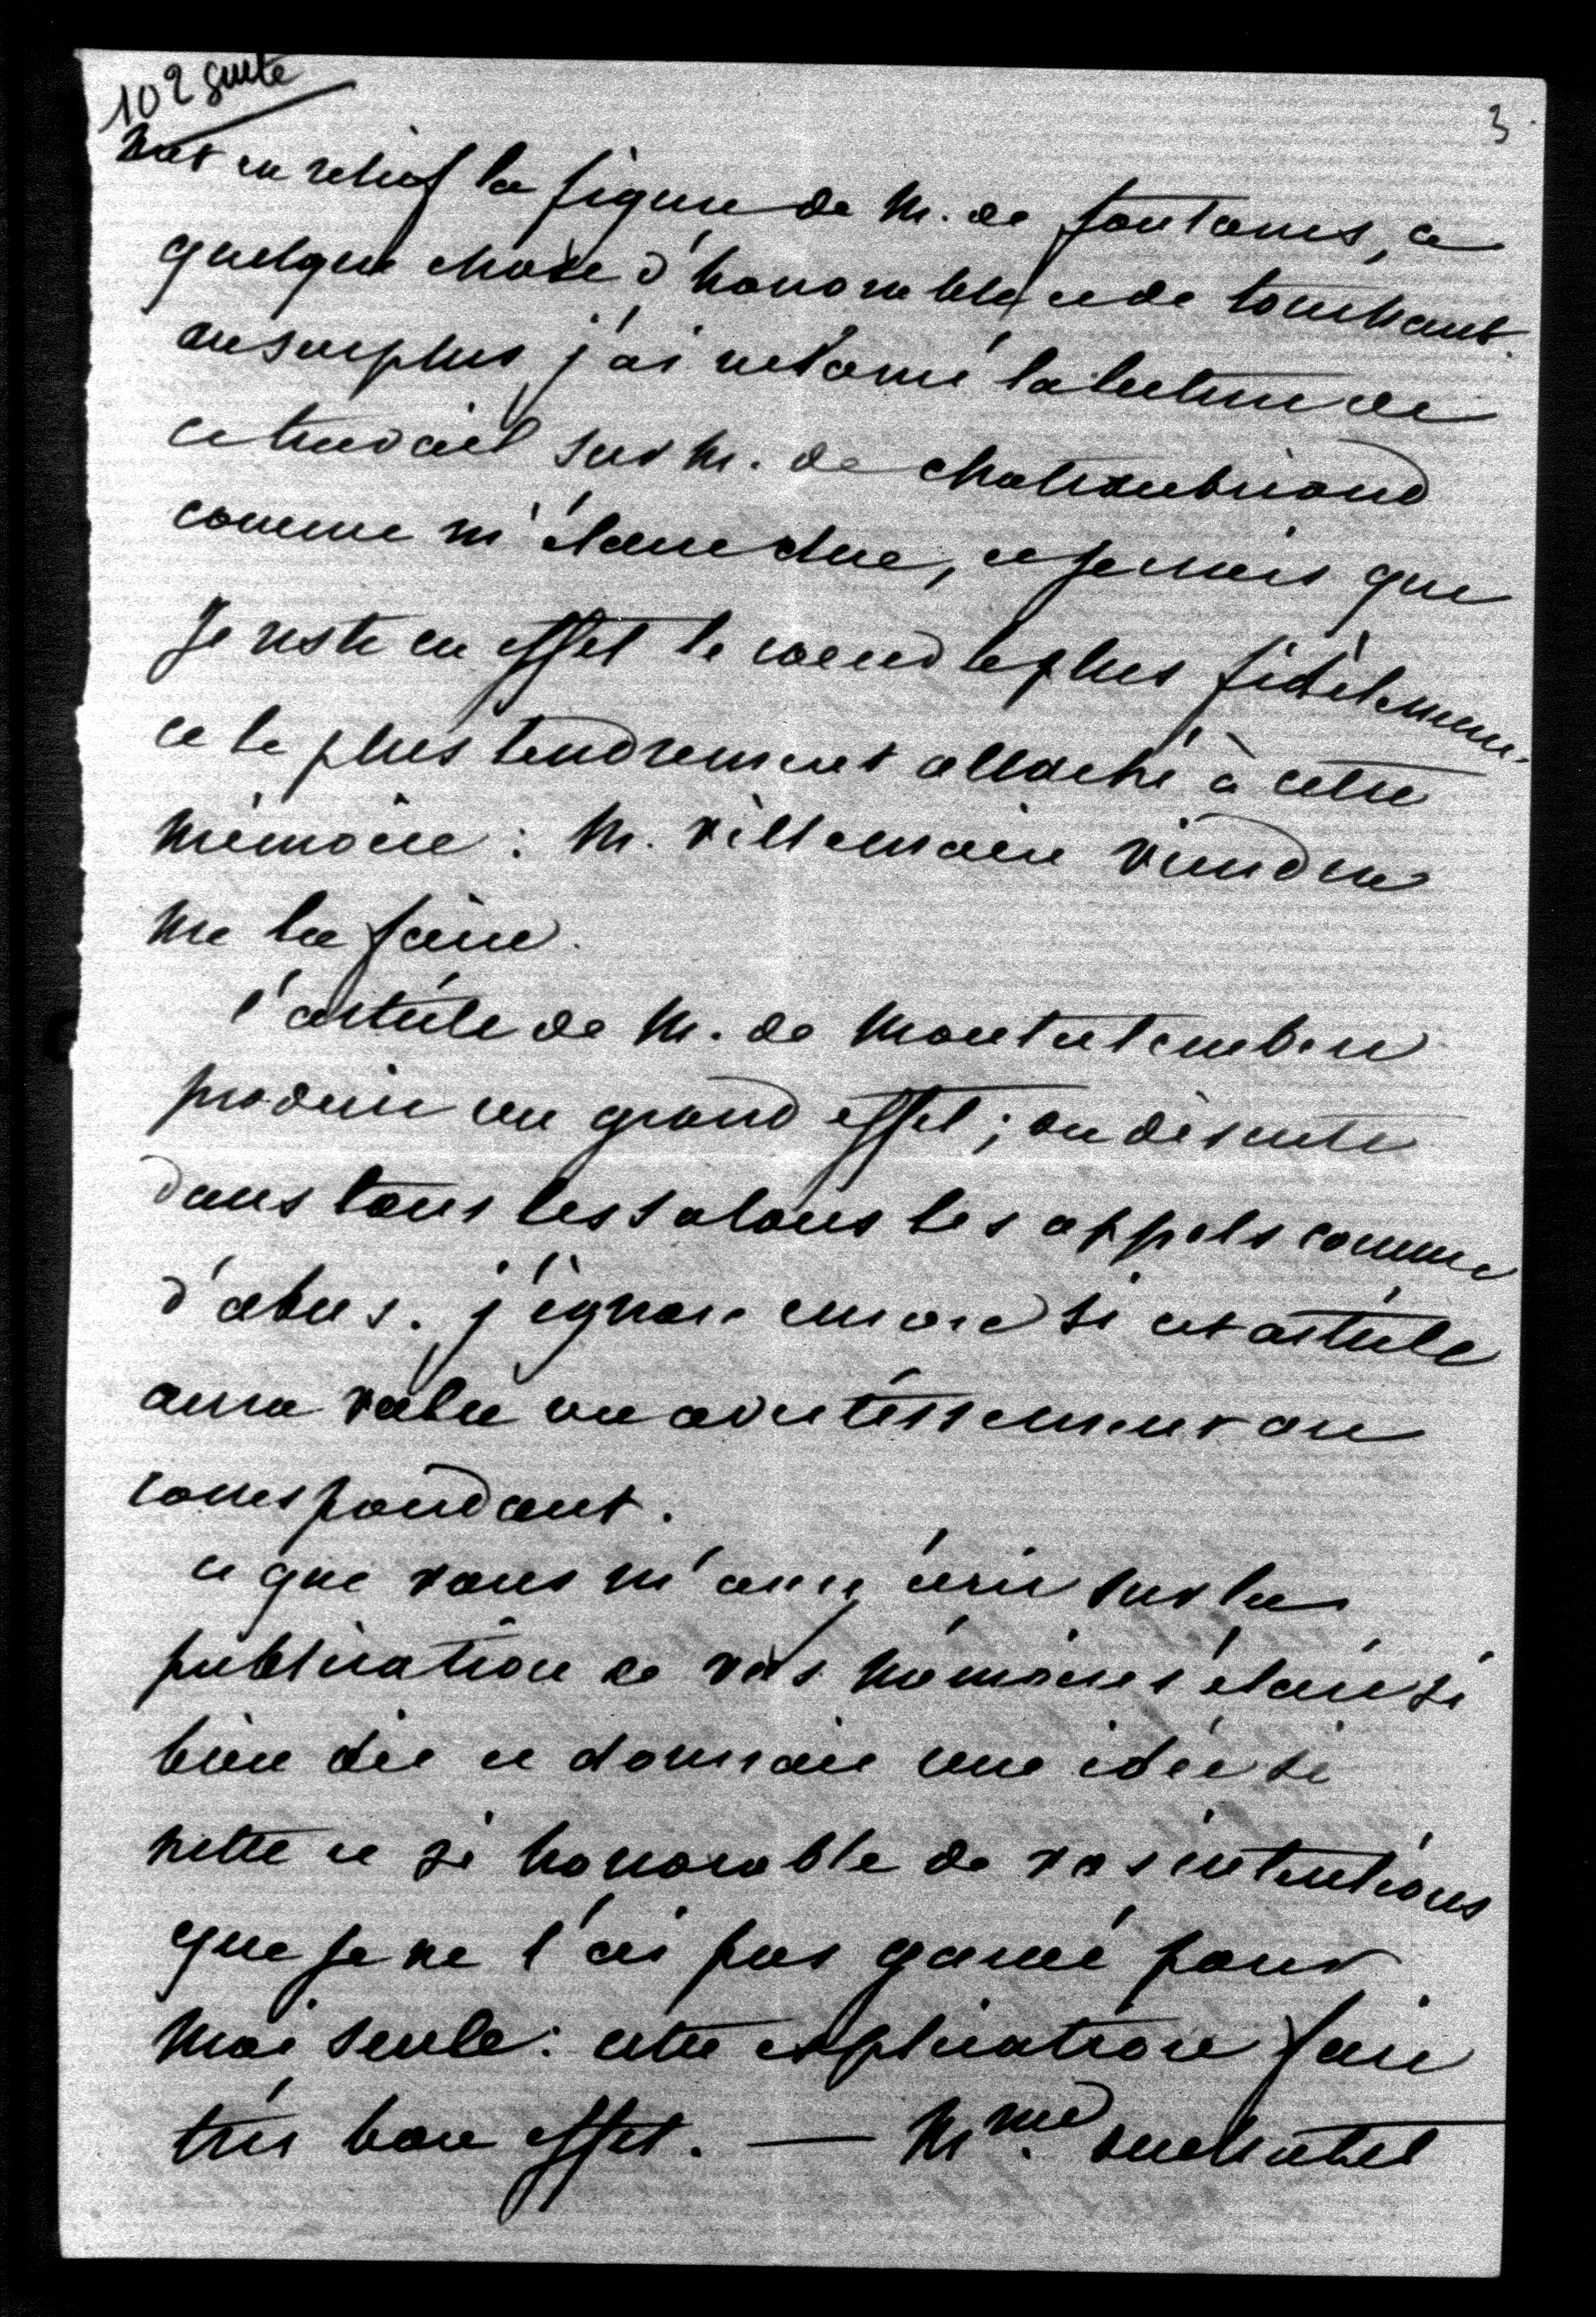 102 suite
3
met en relief la figure de M. de fontanes, a
quelque chose d'honorable et de touchant.
au surplus j'ai réclamé la lecture de
ce travail sur M. de chateaubriand
comme m'étant due, et je crois que
je reste en effet le coeur le plus fidèlement
et le plus tendrement attaché à cette
mémoire : M. villemain viendra
me la faire.
l'article de M. de Montalembert
produit un grand effet ; on discute
dans tous les salons les appels comme
d'abus. j'ignore encore si cet article
aura valu un avertissement au
correspondant.
ce que vous m'avez écrit sur la
publication de vos mémoires était si
bien dit et donnait une idée si
nette et si honorable de vos intentions
que je ne l'ai pas gardé pour
moi seule : cette explication fait
très bon effet. — Mme. duchatel